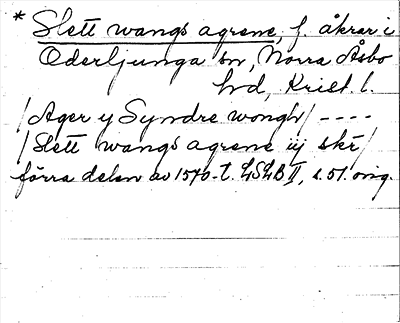 * Slett wangs agrene, f. åkrar i
Oderljunga sn, Norra Åsbo
hd, Krist. l.
/Ager y Syndre wongh/ ----
/Slett wangs agrene iij skr/
förra delen av 1570-t. LSLB II, s. 51. orig.